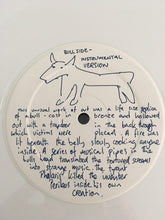 BULLSIDE -
INSTRUMENTAL
VERSION
This unusual work of art was a life size replica
of a bull - cast in bronze and hollowed
out with a trapdoor in the back through
which victims were placed. A fire was
lit beneath the belly slowly cooking anyone
inside. A series of musical pipes in the
bulls head translated the tortured screams
into strange music. The tyrant
Phalaris killed the inventor
Perilaus inside his own
creation.